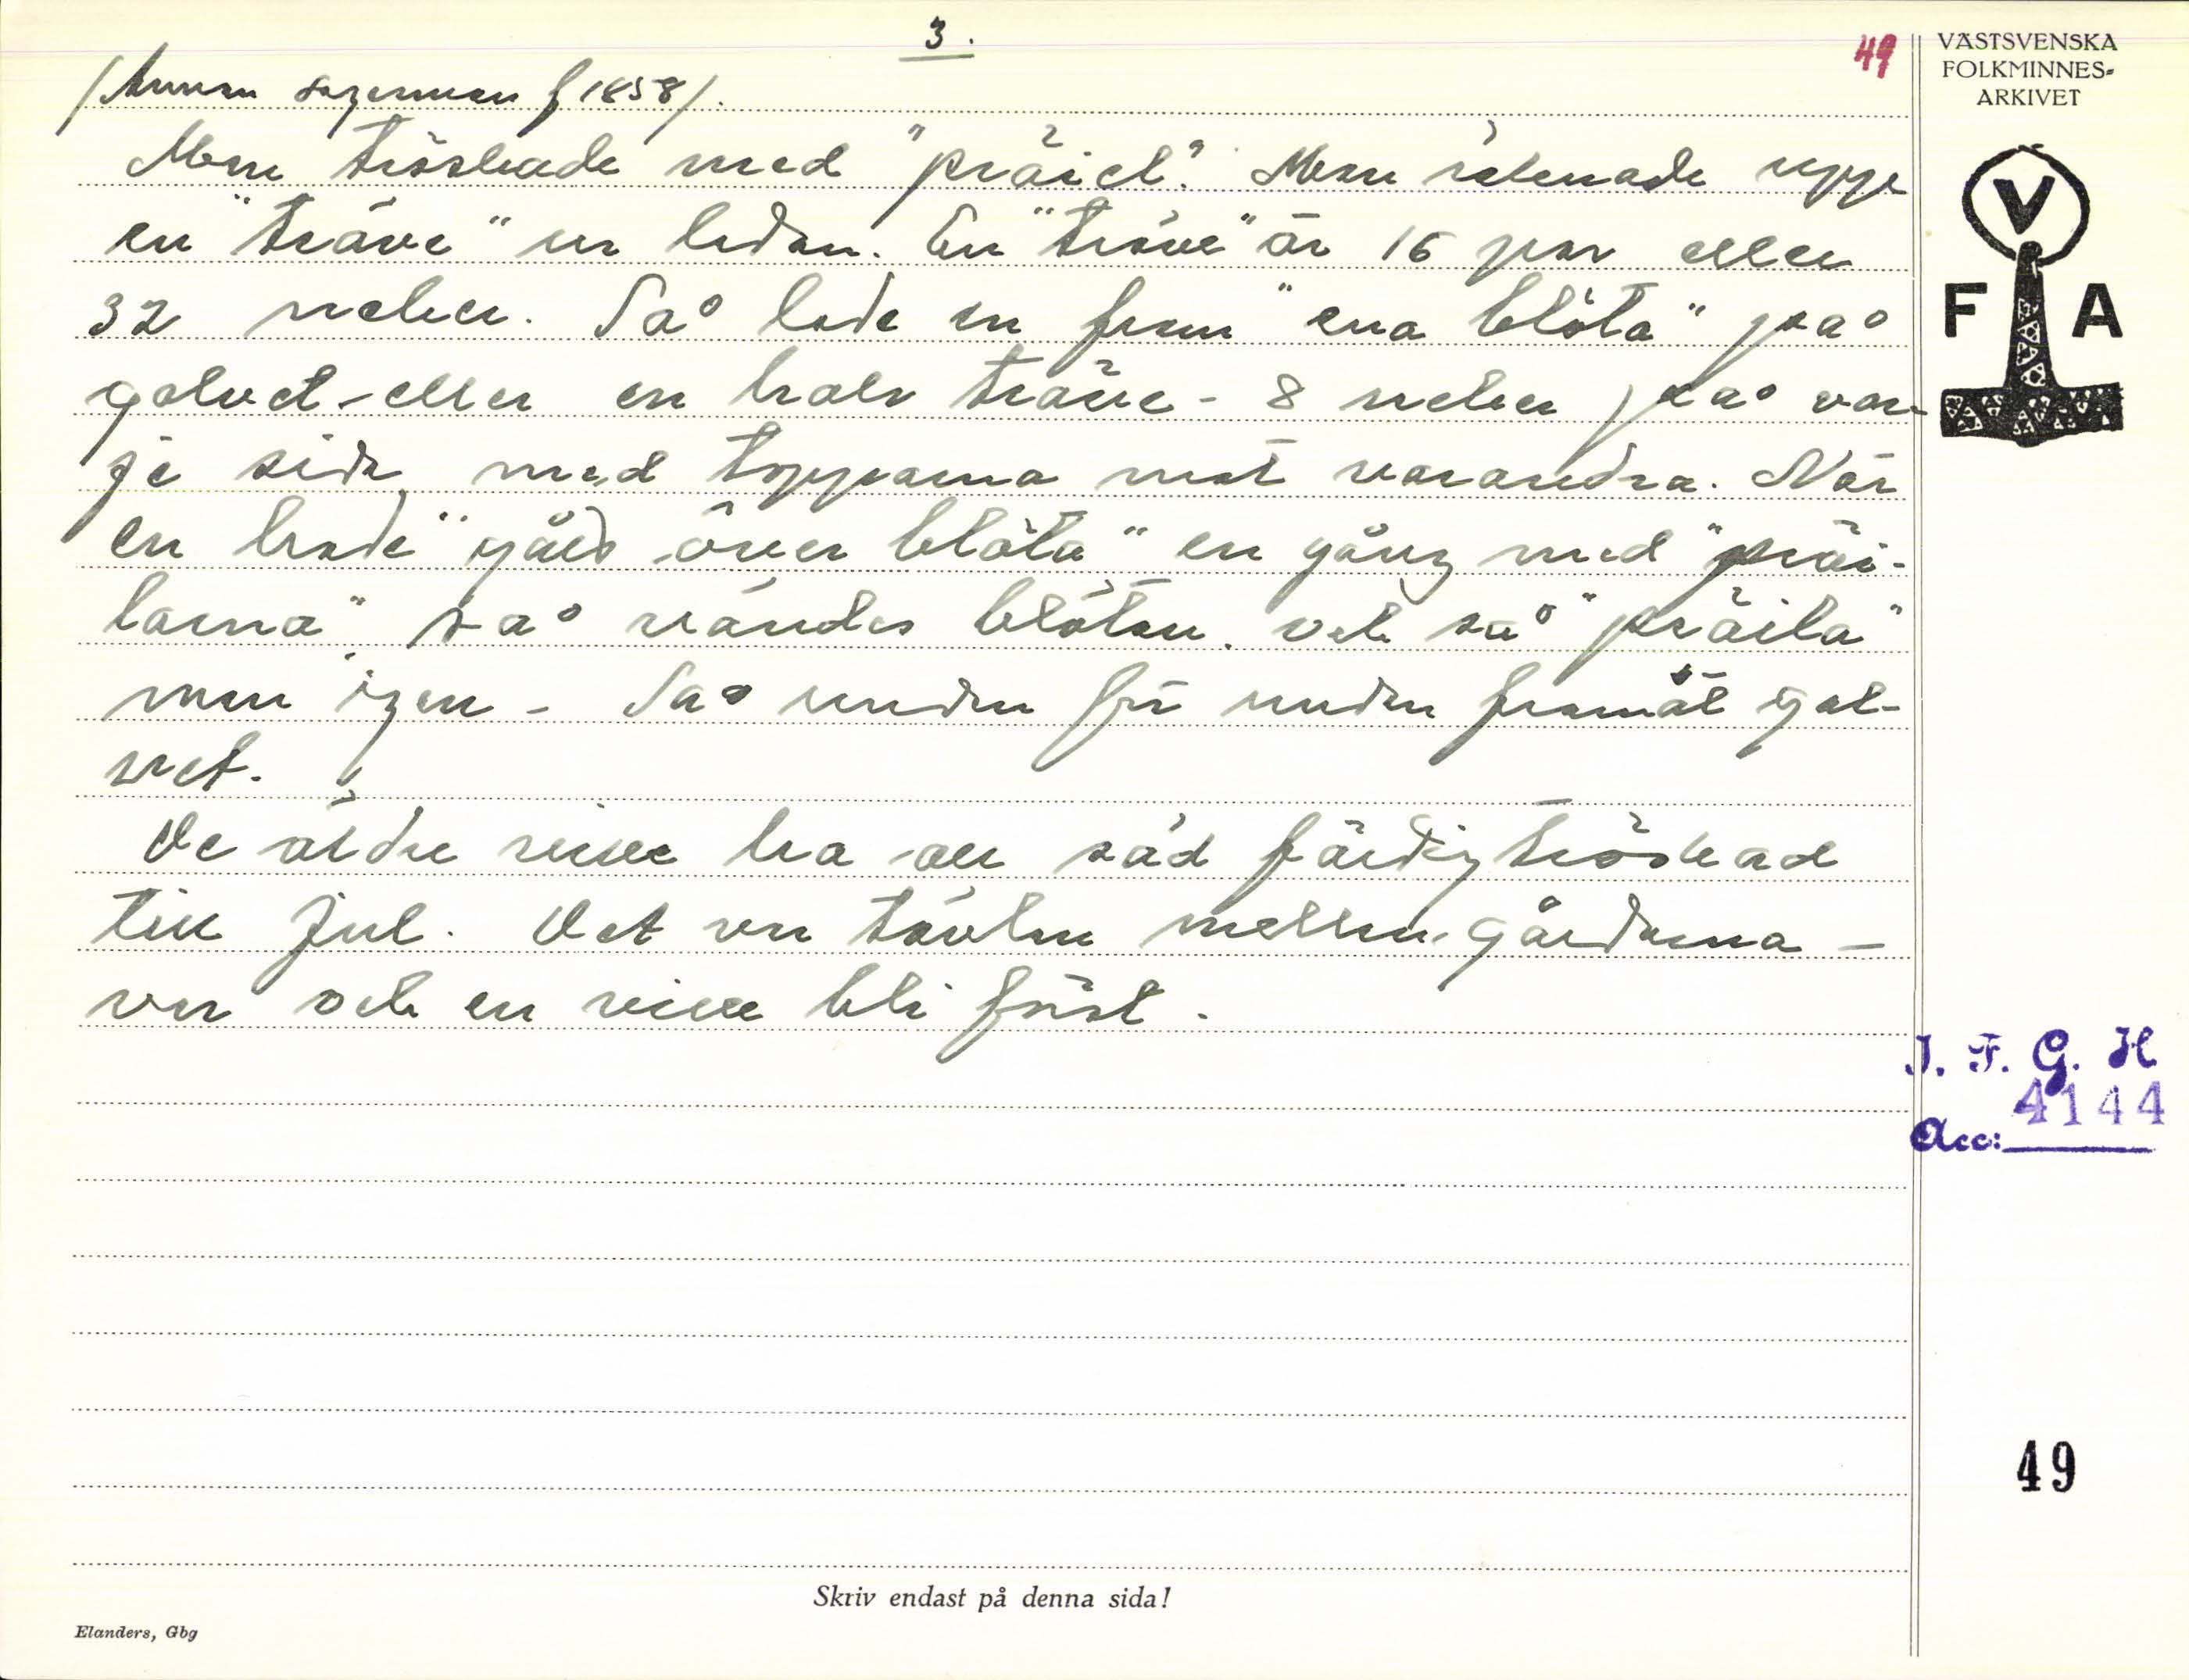 3.
49
VÄSTSVENSKA
FOLKMINNES-
ARKIVET
/Annan sagesman f 1858/.
Man tröskade med "präiel". Man räknade uppe
en "träve" ur ladan. En "träve" är 16 par eller
32 neker. Så lade en fram "ena blöta" på
golvet - eller en halv träve - 8 neker på var-
je sida med topparna mot varandra. När
en hade "gåed över blöta" en gång med "präi-
larna" så vändes blötan. och så "präila"
man igen - Så undan för undan framåt gol-
vet.
De äldre ville ha all säd färdigtröskad
till Jul. Det var tävlan mellan gårdarna -
var och en ville bli först.
V
F A
I. F. G. H
4144
Acc:
49
Skriv endast på denna sida!
Elanders, Gbg